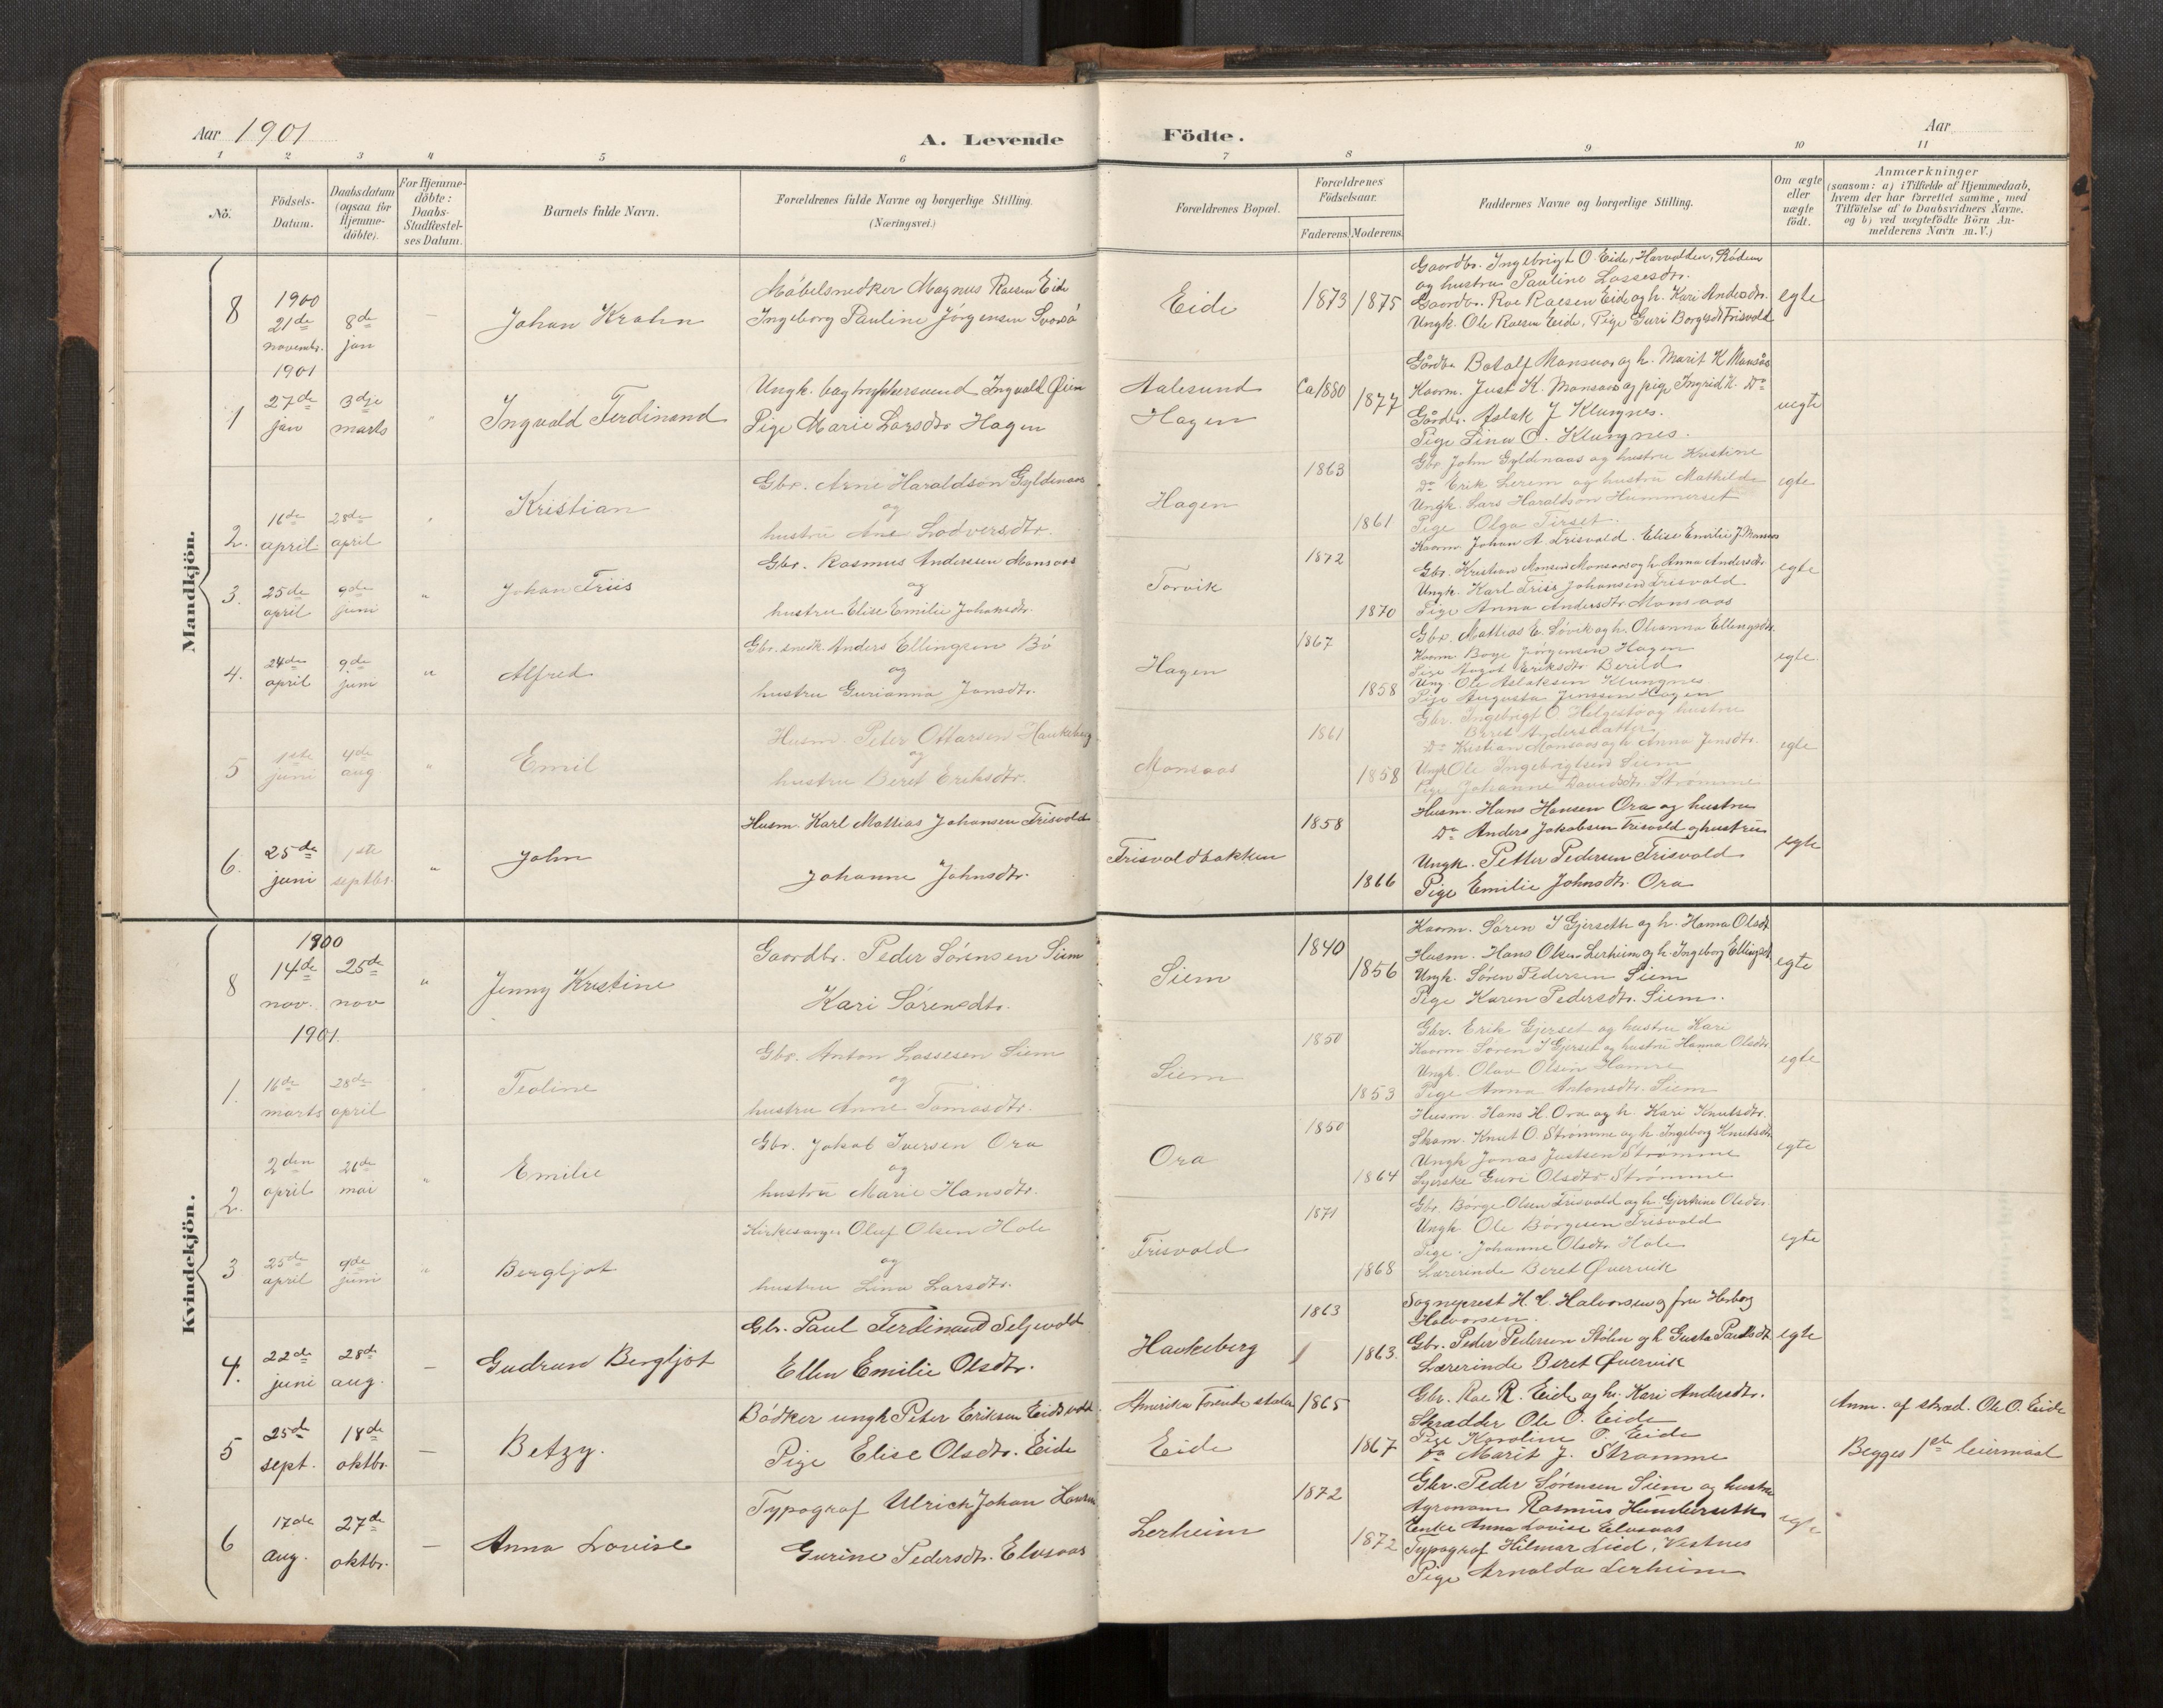 Aar 1901
A. Levende
Födte.
Aar
1 2 3 4 5 6 7 8 9 10 11
No.
Födsels-Datum.
Daabsdatum (ogsaa for Hjemme-döbte).
For Hjemme-döbte: Daabs-Stadfestel-ses Datum.
Barnets fulde Navn.
Forældrenes fulde Navne og borgerlige Stilling.
(Næringsvei.)
Forældrenes Bopæl.
Forældrenes Födselsaar.
Faderens. Moderens.
Faddernes Navne og borgerlige Stilling.
Om ægte eller uægte födt.
Anmærkninger
(saasom: a) i Tilfælde af Hjemmedaab, hvem der har forrettet samme, med Tilföielse af to Daabsvidners Navne. og b) ved uægtefödte Börn An-melderens Navn m. V.)
Mandkjön.
8
1900
21de novembr.
8de jan
Johan Krohn
Möbelsnedker Magnus Raesen Eide
Ingeborg Pauline Jörgensen
Eide
1873 1875
Gaardbr. Ingebrigt O. Eide,
og hustru Pauline Lassesdtr.
Gaardbr. Roe Raesen Eide og h. Kari Andersdtr.
Ungk. Ole Raesen Eide, Pige Guri Borgesdt Frisvold
egte
1901
1
27de jan
3dje marts
Ingvald Ferdinand
Ungk. Ingvald Øien
Pige Marie Larsdtr Hagen
Aalesund
Hagen
Ca 1880 1877
Gårdbr Botolf Monsaas og h. Marit K Monsås
Kaarm. Just K. Monsaas og pige Ingrid K. Do
Gårdbr. Aslak J Klungnes.
Pige Lina O. Klungnes.
uegte
2.
16de april
28de april
Kristian
Gbr. Arne Haraldsön Gyldenaas
og
hustru Ane Lodversdtr.
Hagen
1863
1861
Gbr John Gyldenaas og hustru Kristine
Do Erik Lerem og hustru Mathilde
Ungk. Lars Haraldson Hummerset
Pige Olga Tirset.
egte
3.
25de april
9de juni
Johan Friis
Gbr. Rasmus Anderssen Monsaas
og
hustru Elise Emilie Johansdtr.
Torvik
1872
1870
Kaarm. Johan A. Frisvold. Elise Emilie J. Monsaas
Gbr. Kristian Monsen Monsaas og h. Anna Andersdtr
Ungk. Karl Friis Johansen Frisvold
Pige Anna Andersdtr. Monsaas
egte
4.
24de april
9de juni
Alfred
Gbr. snedk. Anders Ellingsen Bö
og
hustru Gurianna Jonsdtr.
Hagen
1867
1858
Gbr. Mattias E. Sövik og h. Olianna Ellingsdtr.
Kaarm Borge Jörgensen Hagen
Pige Magot Eriksdtr Berild
Ung. Ole Aslaksen Klungnes
Pige Augusta Jenssen Hagen
egte
5
1ste juni
4de aug
Emil
Husm. Peter Ottarsen Haukeberg
og
hustru Beret Eriksdtr.
Monsaas
1861
1858
Gbr. Ingebrigt O. Helgestö og hustru
Beret Andersdatter
Do Kristian Monsaas og h. Anna Jensdtr.
Ungk Ole Ingebrigtsen Siem
Pige Johanne Davidsdtr. Strømme
egte
6.
25de juni
1ste septbr.
John
Husm. Karl Mattias Johansen Frisvold
Johanne Johnsdtr.
Frisvoldbakken
1858
1866
Husm. Hans Hansen Ora og hustru
Do Anders Jakobsen Frisvold og hustru
Ungk. Petter Pedersen Frisvold
Pige Emilie Johnsdtr. Ora
egte
Kvindekjön.
8
1900
14de nov.
25de nov
Jenny Kristine
Gaardbr. Peder Sörensen Siem
Kari Sörensdtr.
Siem
1840
1856
Kaarm. Sören I Gjerseth og h. Hanna Olsdt
Husm. Hans Olsen Lerheim og h. Ingeborg Ellingsdt
Ungk. Sören Pedersen Siem
Pige Karen Pedersdtr. Siem.
egte
1901.
1.
16de marts
28de april
Teoline
Gbr. Anton Lassesen Siem
og
hustru Anne Tomasdtr.
Siem
1850
1853
Gbr. Erik Gjerset og hustru Kari
Kaarm Sören I Gjerset og hustru Hanna Olsdtr
Ungk. Olav Olsen Hamre
Pige Anna Antonsdtr. Siem
egte
2.
2den april
26de mai
Emilie
Gbr. Jakob Iversen Ora
og
hustru Marie Hansdtr.
Ora
1850
1864
Husm. Hans H. Ora og h. Kari Knutsdtr.
Knut O. Strømme og h. Ingeborg Knutsdtr.
Ungk Jonas Justsen Strømme
Syerske Guri Olsdtr Strømme
egte
3
25de april
9de juni
Bergljot
Kirkesanger Oluf Olsen Hole
og
hustru Lina Larsdtr.
Frisvold
1871
1868
Gbr. Börge Olsen Frisvold og h. Gjertrine Olsdtr.
Ungk Ole Börgesen Frisvold
Pige. Johanne Olsdtr Hole
Lærerinde Beret Øvervik
egte
4.
22de juni
28de aug.
Gudrun Bergljot
Gbr. Paul Ferdinand Seljevold
Ellen Emilie Olsdtr.
Haukeberg
1863
1863.
Sogneprest H. C. Halvorsen og fru Herborg
Halvorsen.
Gbr. Peder Pedersen Stölen og h. Gusta Paulsdt
Lærerinde Beret Øvervik
egte
5
25de sept.
18de oktbr.
Betzy.
Bödker ungk Peter Eriksen Eidsvold
Pige Elise Olsdtr. Eide
Amerika Forende stater
Eide
1865
1867
Gbr. Roe R. Eide og h. Kari Andersdtr.
Skrædder Ole O. Eide
Pige Karoline O. Eide
Do Marit J. Strømme
Anm. af skræd. Ole O. Eide
Begges 1ste leiermaal
6
17de aug.
27de oktbr.
Anna Lovise
Typograf Ulrich Johan Hansen
Gurine Pedersdtr. Elvsaas
Lerheim
1872
1872
Gbr. Peder Sörensen Siem og hustru
Agronom Rasmus Hunderseth
Enke Anna Lovise Elvsaas
Typograf Hilmar Lied, Vestnes
Pige Arnolda Lerheim
egte